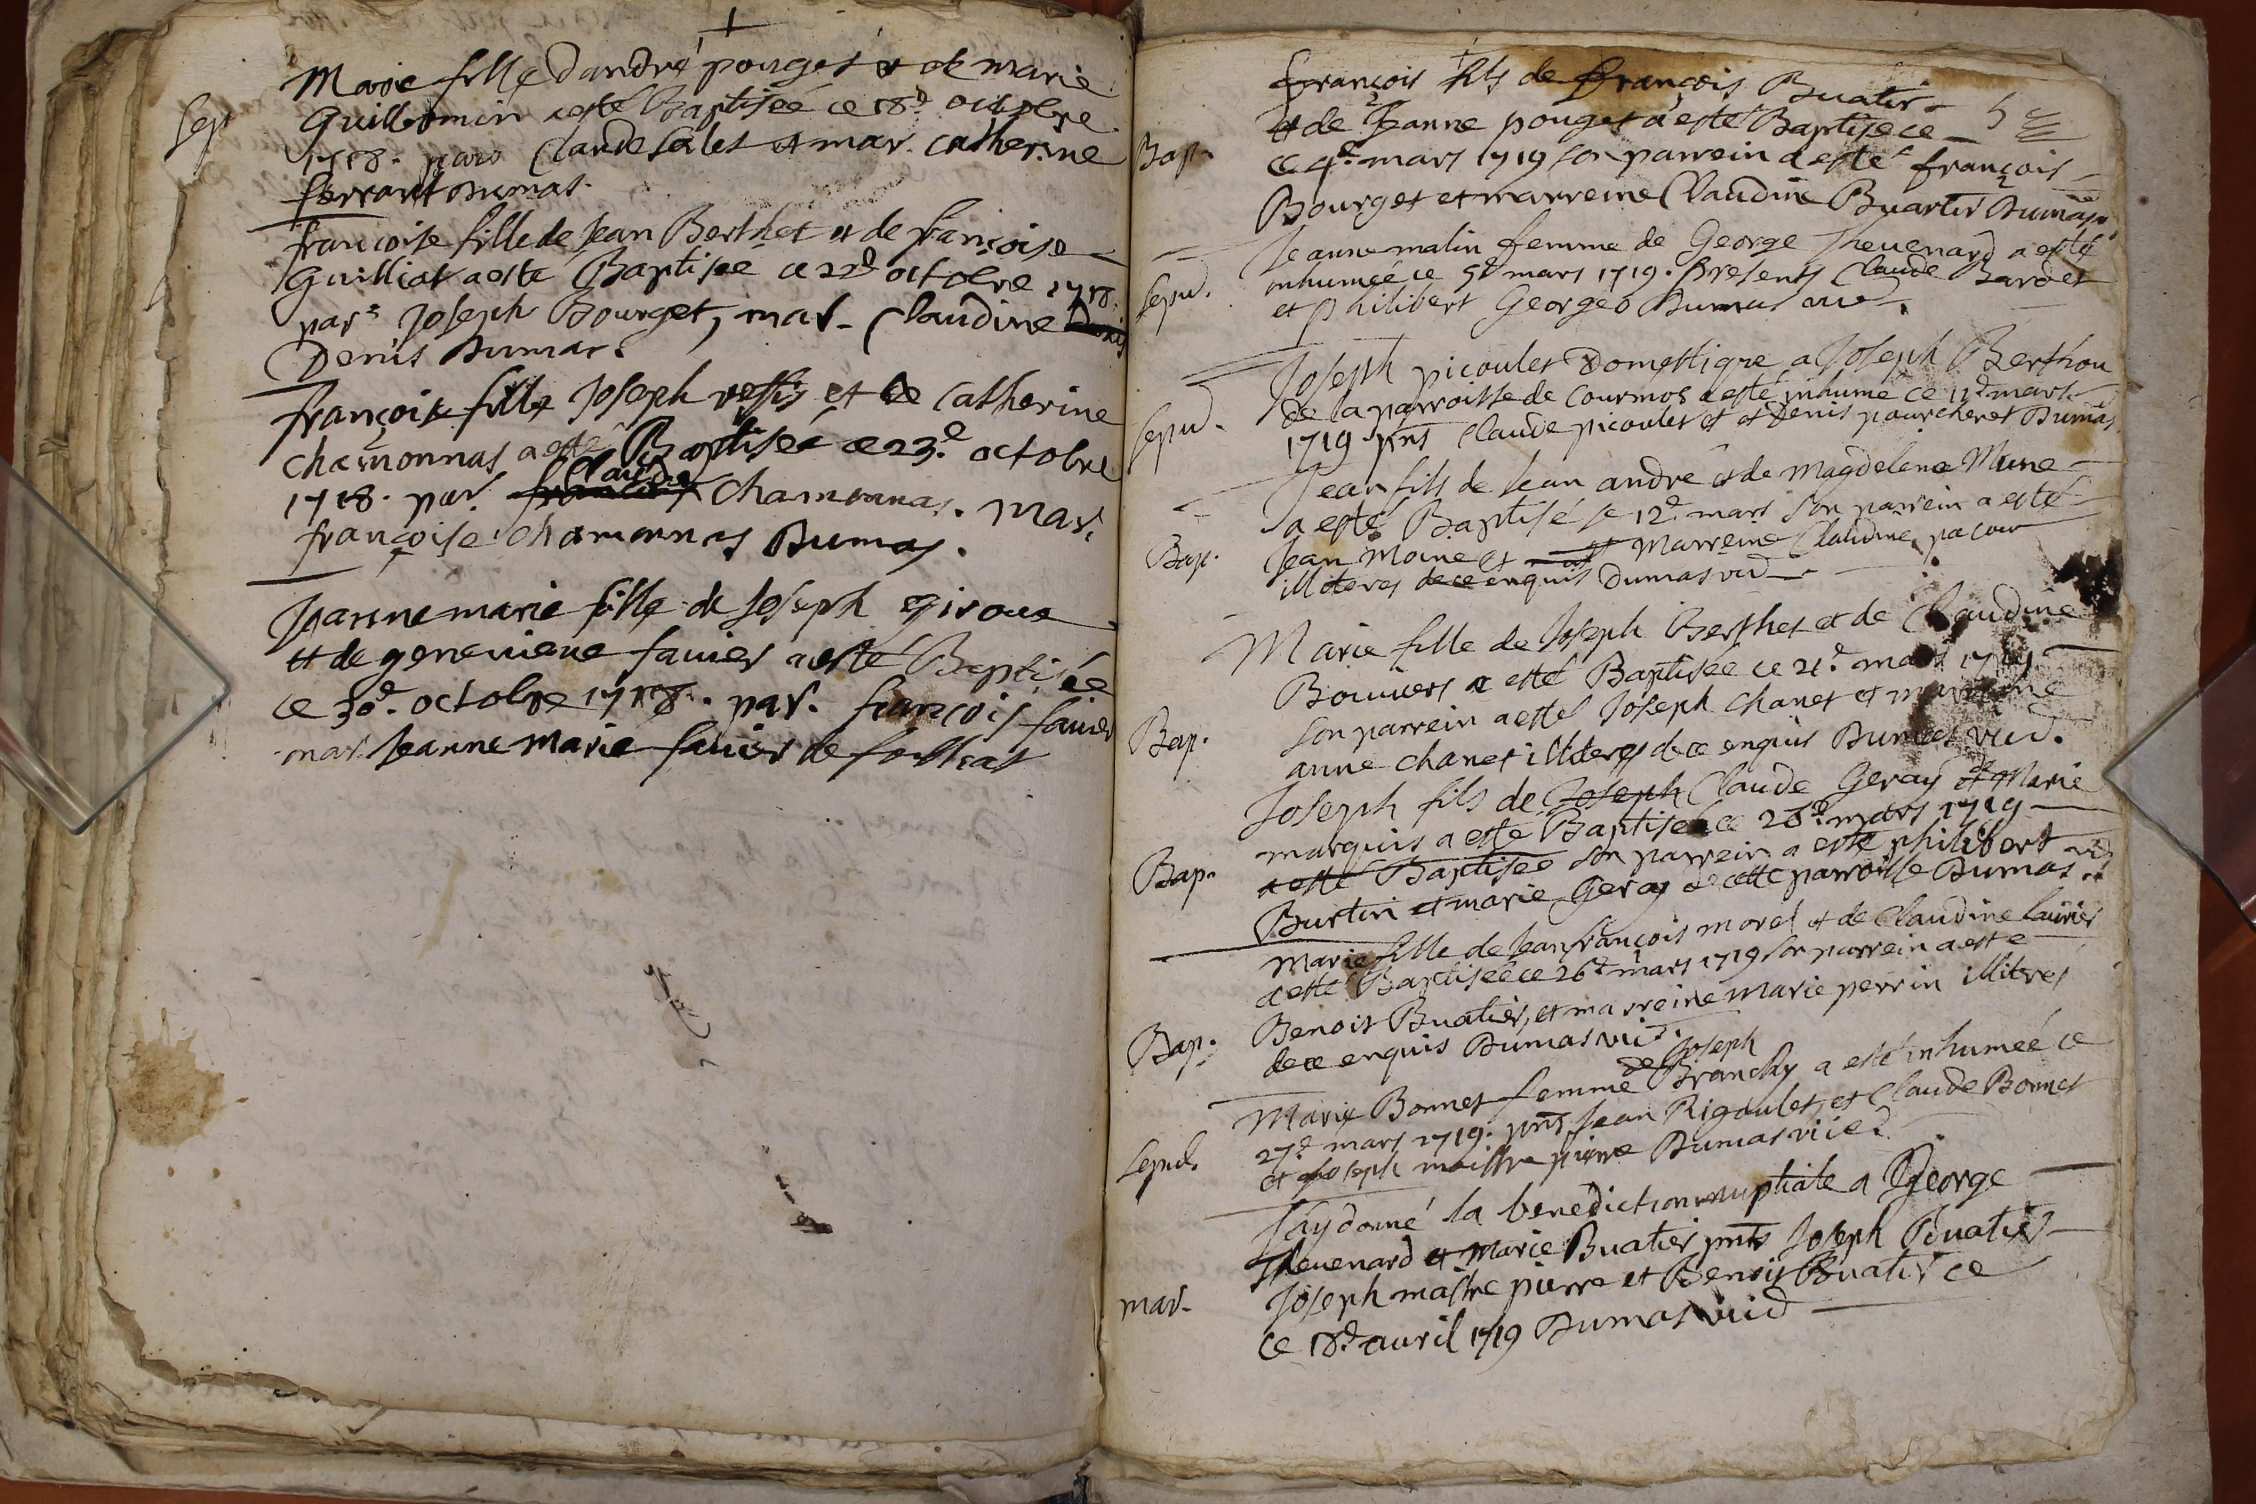 Marie fille d'andré pouget et de marie
Sep
Guillermin a esté Baptiseé ce 18.e octobre
1718. parr Claude Sales et mar. catherine
ferrant Dumas.
françoise fille de Jean Berthet et de françoise
Guilliat a esté Baptiseé ce 22.e octobre 1718.
par.r Joseph Bourget, mar. Claudine Denis
Denis Dumas.
françoise fille Joseph et de Catherine
chamonnas a esté Baptiseé ce 23.e octobre
1718. par. Claude chamonnas. mar.
françoise chamonnas Dumas.
Jeanne marie fille de Joseph giroux
et de genevieve favier a esté Baptiseé
ce 30.e octobre 1718. par. françois favier
mar. Jeanne Marie favier de
françois fils de françois Buatier
et de Jeanne pouget a esté Baptise ce 5
Bap.
ce 4.e mars 1719 son parrein a esté françois
Bourget et marreine Claudine Buatier Dumas
Jeanne matin femme de George Thevenard a esté
Sepu.
inhumeé ce 5.e mars 1719. presents Claude Bardet
et philibert George Dumas vic.
Joseph picoulet Domestique a Joseph Berthou
de la parroisse de Courmos a esté inhumé ce 11.e mars
Sepu.
1719. pnts Claude picoulet et et Denis pourcheret Dumas
Jean fils de Jean andré et de Magdeleine Mune
a esté Baptisé le 12.e mars son parrein a esté
Bap.
Jean Moine et et Marreine Claudine pacour
illiteres de ce enquis Dumas vic
Marie fille de Joseph Berthet et de Claudine
Bouvier a esté Baptiseé ce 21.e mars 1719
Bap.
son parrein a esté Joseph chanet et marreine
anne chanet illiteres de ce enquis Dumas vic.
Joseph fils de Joseph Claude Geray et Marie
marquis a esté Baptisé ce 26.e mars 1719
Bap.
a esté Baptiseé son parrein a esté philibert
Burtin et marie Geray de cette parroisse Dumas
Marie fille de Jean françois morel et de Claudine
a esté Baptiseé ce 26.e mars 1719 son parrein a esté
Bap.
Benoit Buatier, et marreine Marie perrin illiteres
de ce enquis Dumas vic.
de Joseph
Marie Bonnet femme Branchy a esté inhumeé ce
Sepul.
27.e mars 1719. pnts Jean Rigoulet, et Claude Bonnet
et Joseph maistre pierre Dumas vic.
J'ay donné la benediction nuptiale a George
Thevenard et Marie Buatier pnts Joseph Buatier
mar.
Joseph mastre pierre et Benoit Buatier ce
ce 18.e avril 1719 Dumas vic